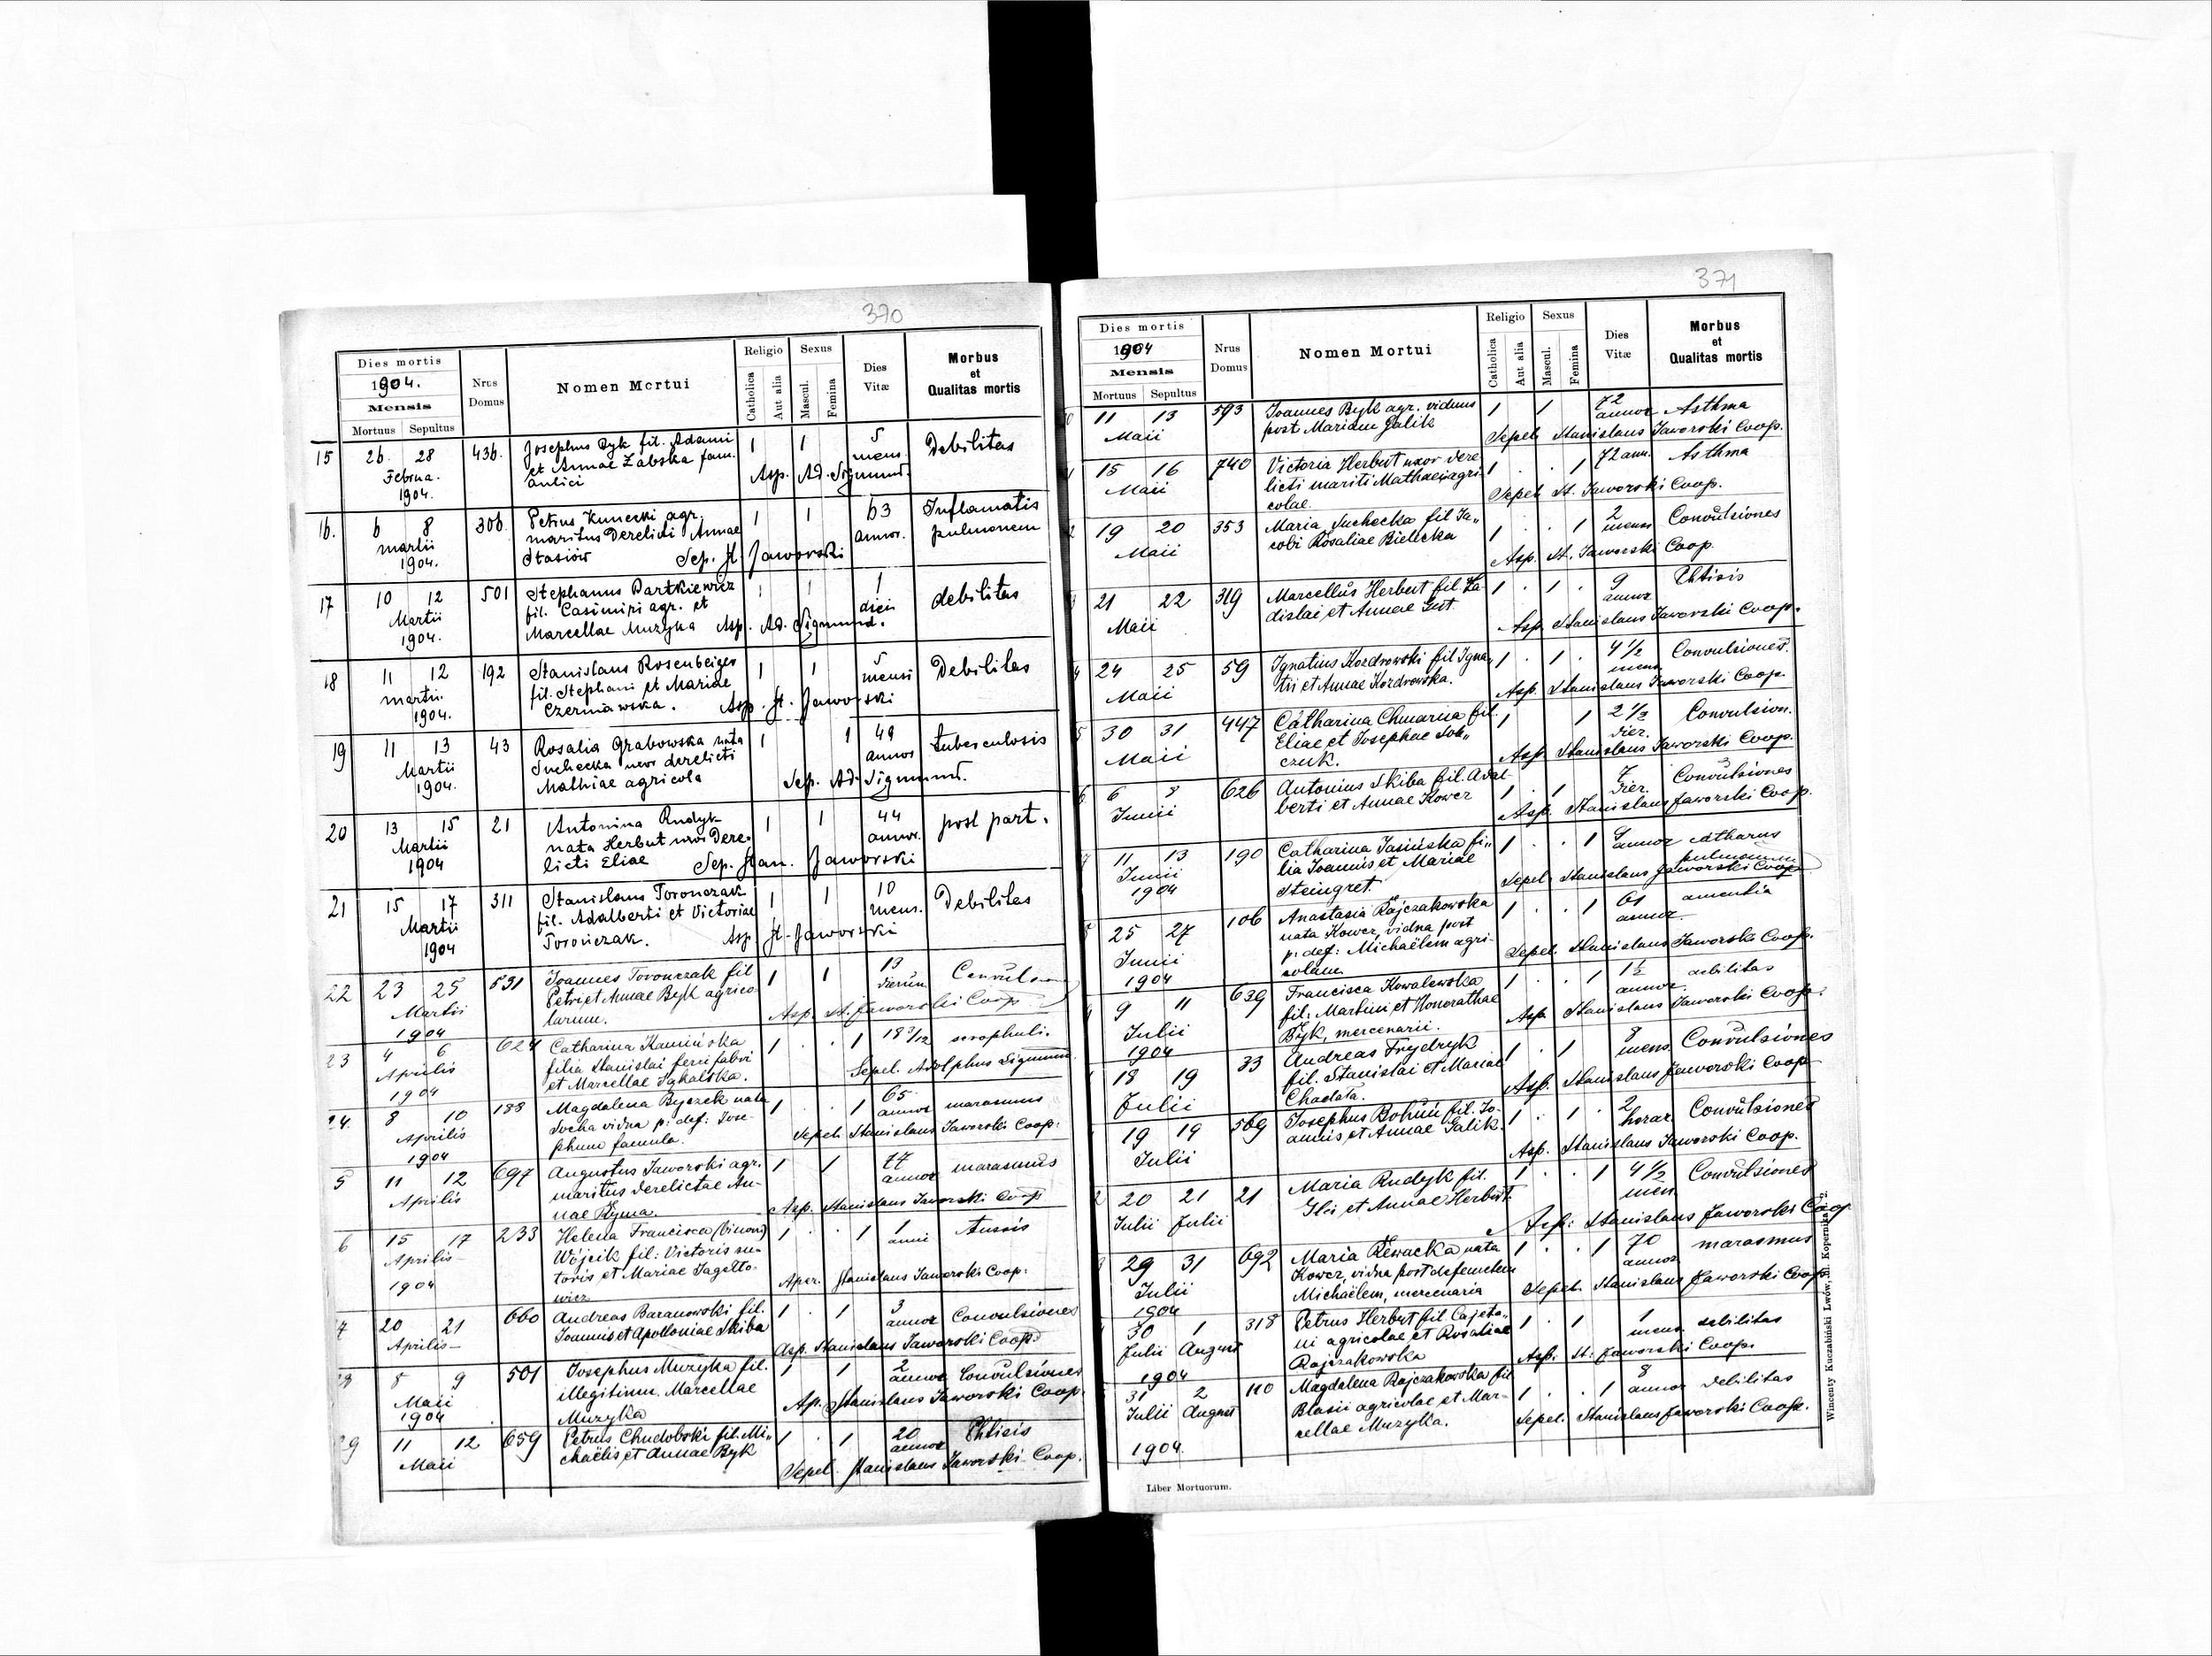 370
Dies mortis
1904.
Mensis
Mortuus Sepultus
Nrus Domus
Nomen Mortui
Religio
Catholica
Aut alia
Sexus
Mascul.
Femina
Dies Vitæ
Morbus et Qualitas mortis
15 26 28 436. Josephus Byk fil. Adami 1 1 5 Debilitas
Februa. et Annae Żabska fam. mens.
1904. aulici Asp. Ad. Sigmund.
16. 6 8 306. Petrus Kunecki agr. 1 1 63 Inflamatis
martii maritus derelicti Annae annor. pulmonem
1904. Stasiów Sep. St Jaworski
17 10 12 501 Stephanus Bartkiewicz 1 1 1 debilitas
Martii fil. Casimiri agr. et diei
1904. Marcellae Muzyka Asp. Ad. Sigmund.
18 11 12 192 Stanislaus Rosenbeiger 1 1 5 Debilitas
martii fil. Stephani et Mariae mensi
1904. Czerniawska. Asp. St. Jaworski
19 11 13 43 Rosalia Grabowska nata 1 1 49 tuberculosis
Martii Suchecka uxor derelicti annor
1904. Mathiae agricola Sep. Ad. Sigmund.
20 13 15 21 Antonina Rudyk 1 1 44 post part.
Martii nata Herbut uxor Dere- annor.
1904 licti Eliae Sep. Stan. Jaworski
21 15 17 311 Stanislaus Torończak 1 1 10 Debilitas
Martii fil. Adalberti et Victoriae mens.
1904 Torończak. Asp St. Jaworski
22 23 25 531 Joannes Torończak fil 1 1 13
Martii Petri et Annae Byk agrico- dierum
1904 larum. Asp. St. Jaworski Coop
23 4 6 624 Catharina Kamińska 1 . . 1 18 3/12 scrophuli.
Aprilis filia Stanislai ferri fabri
1904 et Marcellae Sepel. Adolphus Sigmund
24. 8 10 188 Magdalena Byczek nata 1 . . 1 65 marasmus
Aprilis Socha vidua p: def: Jose- annor
1904 phum famula. Sepel. Stanislaus Jaworski Coop:
5 11 12 697 Augustus Jaworski agr. 1 1 77 marasmus
Aprilis maritus derelictae An- annor
nae Ryma. Asp. Stanislaus Jaworski Coop
6 15 17 233 Helena Francisca (binom) 1 . . 1 1 Tussis
Aprilis Wójcik fil: Victoris su- anni
1904 toris et Mariae Jagiełło-
wicz Aper. Stanislaus Jaworski Coop:
7 20 21 660 Andreas Baranowski fil. 1 . 1 3 Convulsiones
Aprilis Joannis et Apolloniae Skiba annor
Asp. Stanislaus Jaworski Coop.
28 8 9 501 Josephus Muzyka fil. 1 1 2 Convulsiones
Maii illegitimu. Marcellae annor
1904 Muzyka Ap. Stanislaus Jaworski Coop.
29 11 12 659 Petrus Chudobski fil. Mi- 1 . 1 20 Phtisis
Maii chaëlis et Annae Byk annor
Sepel. Stanislaus Jaworski Coop.
371
Dies mortis
1904
Mensis
Mortuus Sepultus
Nrus Domus
Nomen Mortui
Religio
Catholica
Aut alia
Sexus
Mascul.
Femina
Dies Vitæ
Morbus et Qualitas mortis
11 13 593 Joannes Byk agr. viduus 1 1 72 Asthma
Maii post Mariam Galik annor
Sepel Stanislaus Jaworski Coop.
15 16 740 Victoria Herbut uxor dere 1 . . 1 72 ann. Asthma
Maii licti mariti Mathaei agri-
colae Sepel St. Jaworski Coop.
19 20 353 Maria Suchecka fil Ja- 1 . . 1 2 Convulsiones
Maii cobi Rosaliae Bielecka mens
Asp. St. Jaworski Coop.
21 22 319 Marcellus Herbut fil. La 1 . 1 . 9 Phtisis
Maii dislai et Annae Gut annor
Asp Stanislaus Jaworski Coop.
24 25 59 Ignatius Kozdrowski fil Igna- 1 . 1 . 4 1/2 Convulsiones
Maii tii et Annae Kozdrowska. mens
Asp. Stanislaus Jaworski Coop.
30 31 447 Catharina Chmarna fil. 1 1 2 1/2 Convulsion.
Maii Eliae et Josephae Sob- dier.
czuk. Asp Stanislaus Jaworski Coop.
6 8 626 Antonius Skiba fil. Adal- 1 . 1 7 Convulsiones
Junii berti et Annae Kowcz dier.
Asp. Stanislaus Jaworski Coop.
11 13 190 Catharina Jasińska fi- 1 . . 1 9 catharus
Junii lia Joannis et Mariae annor pulmonum
1904 Steingret. Sepel. Stanislaus Jaworski Coop
25 27 106 Anastasia Rajczakowska 1 . . 1 61 amentia
Junii nata Kowcz, vidua post annor.
1904 p: def: Michaëlem agri-
colam Sepel. Stanislaus Jaworski Coop.
9 11 639 Francisca Kowalewska 1 . . 1 1 1/2 debilitas
Julii fil: Martini et Honorathae annor.
1904 Byk, mercenarii. Asp Stanislaus Jaworski Coop.
18 19 33 Andreas Frydryk 1 . 1 8 Convulsiones
Julii fil. Stanislai et Mariae mens.
Chadała. Asp. Stanislaus Jaworski Coop
19 19 569 Josephus Bohun fil. Jo- 1 . 1 . 2 Convulsiones
Julii annis et Annae Galik. horar
Asp. Stanislaus Jaworski Coop.
20 21 21 Maria Rudyk fil. 1 . . 1 4 1/2 Convulsiones
Julii Julii Ilii et Annae Herbut mens
Asp: Stanislaus Jaworski Coop
29 31 692 Maria nata 1 . . 1 70 marasmus
Julii Kowcz, vidua post defunctum annor
1904 Michaëlem, mercenaria Sepel. Stanislaus Jaworski Coop
30 1 318 Petrus Herbut fil. Cajeta- 1 . 1 1 debilitas
Julii August ni agricolae et Rosaliae mens.
1904 Rajczakowska Asp. St. Jaworski Coop.
31 2 110 Magdalena Rajczakowska fil 1 . . 1 8 debilitas
Julii August Blasii agricolae et Mar- annor
1904. cellae Muzyka. Sepel. Stanislaus Jaworski Coop.
Liber Mortuorum.
Wincenty Kuczabiński Lwów, ul. Kopernika